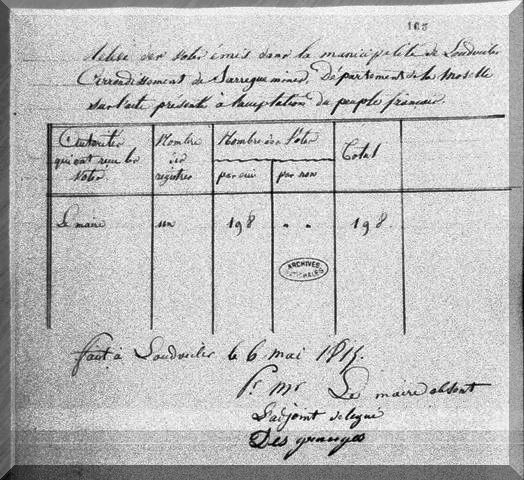 163
relevé des votes émis dans la municipalité de Loudviller
arrondissement de Sarreguemines, Département de la Moselle
sur l'acte présenté à l'acceptation du peuple français.
Autorités qui ont reçu les Votes
Nombre des registres
Nombre des Votes
Total
par oui
par non
Le maire
un
198
" "
198.
ARCHIVES NATIONALES
fait à Loudviller le 6 mai 1815.
Pr Mr Le maire absent
L'adjoint délégué